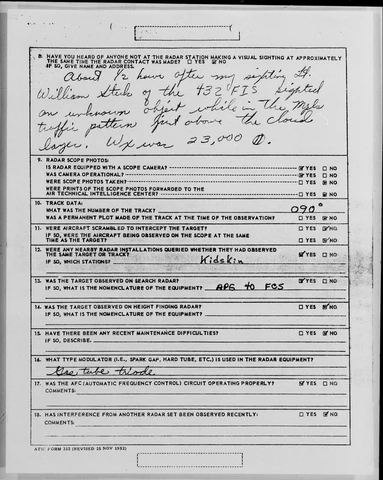 8. HAVE YOU HEARD OF ANYONE NOT AT THE RADAR STATION MAKING A VISUAL SIGHTING AT APPROXIMATELY
THE SAME TIME THE RADAR CONTACT WAS MADE? YES NO
IF SO, GIVE NAME AND ADDRESS.
About 1/2 hour after my sighting Lt.
William of the 432 FIS sighted
an unknown object while in the
traffic pattern just above the cloud
layer. Wx was 23,000
9. RADAR SCOPE PHOTOS:
IS RADAR EQUIPPED WITH A SCOPE CAMERA? YES NO
WAS CAMERA OPERATIONAL? YES NO
WERE SCOPE PHOTOS TAKEN? YES NO
WERE PRINTS OF THE SCOPE PHOTOS FORWARDED TO THE
AIR TECHNICAL INTELLIGENCE CENTER? YES NO
10. TRACK DATA:
WHAT WAS THE NUMBER OF THE TRACK? 090°
WAS A PERMANENT PLOT MADE OF THE TRACK AT THE TIME OF THE OBSERVATION? YES NO
11. WERE AIRCRAFT SCRAMBLED TO INTERCEPT THE TARGET? YES NO
IF SO, WERE THE AIRCRAFT BEING OBSERVED ON THE SCOPE AT THE SAME
TIME AS THE TARGET? YES NO
12. WERE ANY NEARBY RADAR INSTALLATIONS QUERIED WHETHER THEY HAD OBSERVED
THE SAME TARGET OR TRACK? YES NO
IF SO, WHICH STATIONS? Kidskin
13. WAS THE TARGET OBSERVED ON SEARCH RADAR? YES NO
IF SO, WHAT IS THE NOMENCLATURE OF THE EQUIPMENT? APG 40 FCS
14. WAS THE TARGET OBSERVED ON HEIGHT FINDING RADAR? YES NO
IF SO, WHAT IS THE NOMENCLATURE OF THE EQUIPMENT?
15. HAVE THERE BEEN ANY RECENT MAINTENANCE DIFFICULTIES? YES NO
IF SO, DESCRIBE.
16. WHAT TYPE MODULATOR (I.E., SPARK GAP, HARD TUBE, ETC.) IS USED IN THE RADAR EQUIPMENT?
Gas tube triode.
17. WAS THE AFC (AUTOMATIC FREQUENCY CONTROL) CIRCUIT OPERATING PROPERLY? YES NO
COMMENTS:
18. HAS INTERFERENCE FROM ANOTHER RADAR SET BEEN OBSERVED RECENTLY: YES NO
COMMENTS:
ATIC FORM 332 (REVISED 25 NOV 1952)